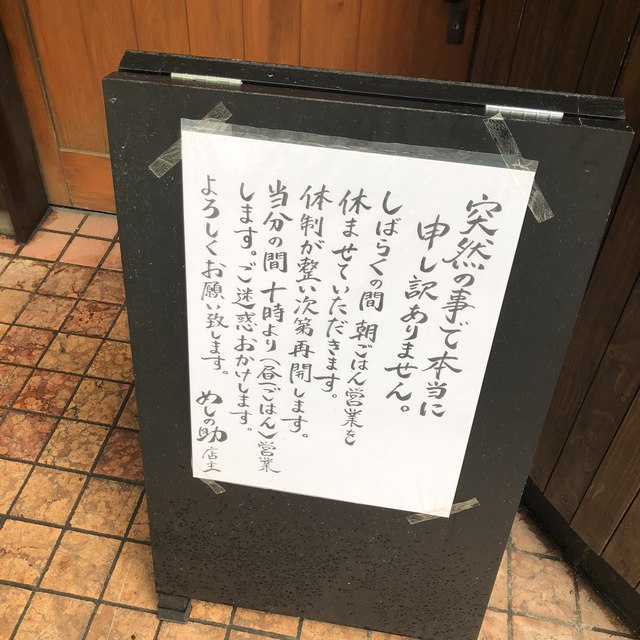 突然の事で本当に
申し訳ありません。
しばらくの間 朝ごはん営業を
休ませていただきます。
体制が整い次第再開します。
当分の間 十時より(昼ごはん)営業
します。ご迷惑おかけします。
よろしくお願い致します。 めしの助 店主